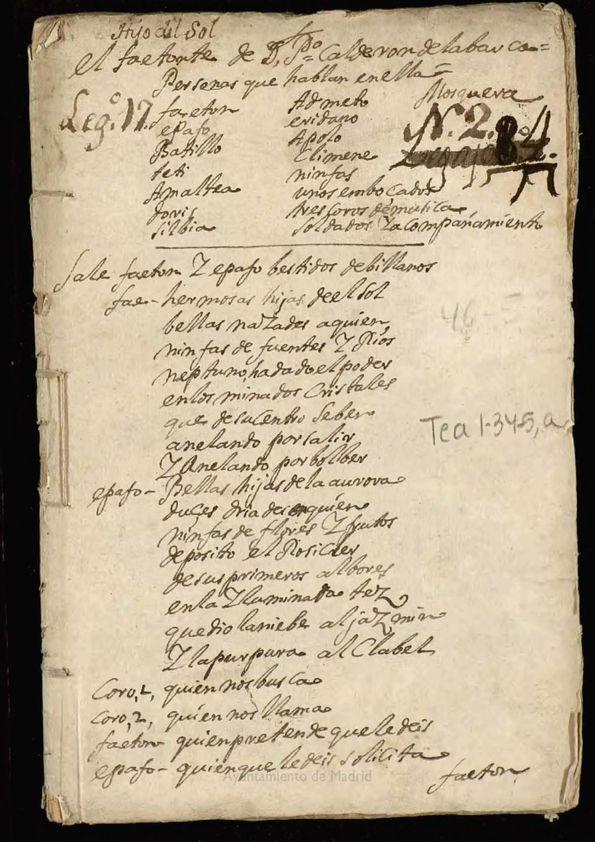 Hijo del Sol
el faetonte de D. Po Calderon de la barca=
Personas que hablan en ella=
Mosquera
Leg.o 17.
N. 2.
84.
faeton Admeto
epafo eridano
Batillo Apolo
teti Climene
Amaltea ninfas
doris unos embocados
silbia tres coros de musica
soldados Y acompañamiento
Sale faeton Y epafo bestidos de billanos
fae- hermosas hijas de el sol
bellas naYades a quien
ninfas de fuentes Y Rios
neptuno, ha dado el poder
en los minados Cristales
que de su centro se ber
anelando por salir
Y Anelando por bolber
epafo- Bellas hijas de la aurora
dulces driades a quien
ninfas de flores Y frutos
deposito el Rosicler
de sus primeros albores
en la Yluminada tez
que dio la niebe al jazmin
Y la purpura al Clabel
Coro, 1, quien nos busca
coro, 2, quien nos llama
faeton- quien pretende que le deis
epafo- quien que le deis solicita
faeton
46-5
Tea 1-34-5, a
Ayuntamiento de Madrid